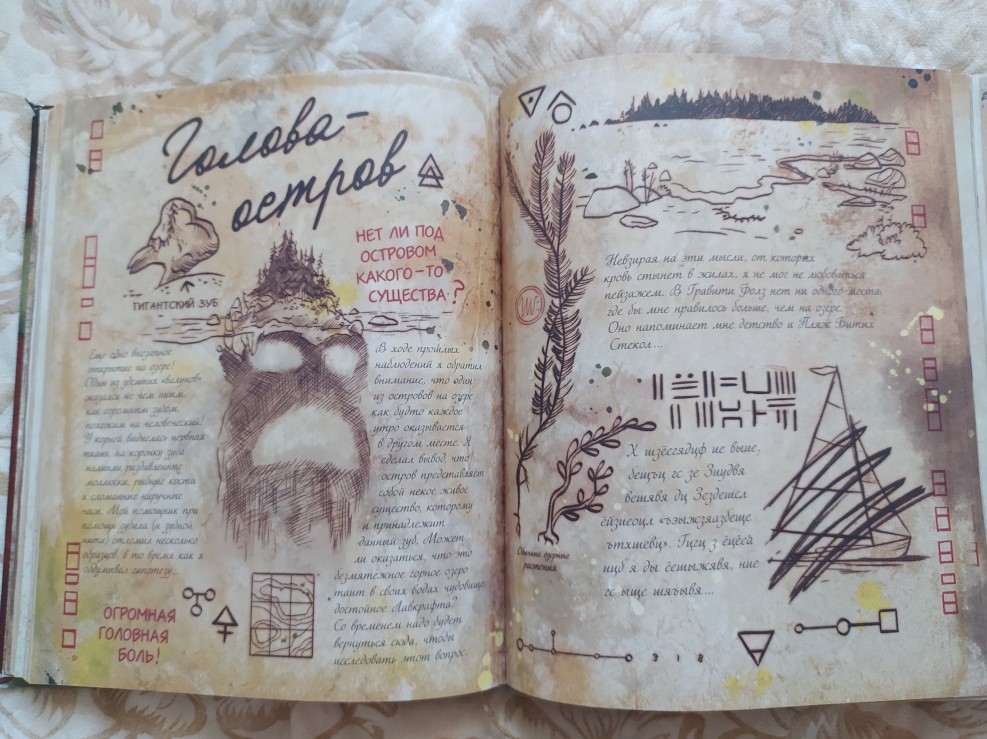 Голова-
остров
НЕТ ЛИ ПОД
ОСТРОВОМ
КАКОГО-ТО
СУЩЕСТВА?
ГИГАНТСКИЙ ЗУБ
Еще одно внезапное
открытие на озере!
Один из здешних «валунов»
оказался не чем иным,
как огромным зубом,
похожим на человеческий!
У корней виднелась нервная
ткань, на коронку зуба
налипли раздавленные
моллюски, рыбьи кости
и сломанные наручные
часы. Мой помощник при
помощи зубила (и зубной
нити) отломил несколько
образцов, в то время как я
обдумывал гипотезу...
ОГРОМНАЯ
ГОЛОВНАЯ
БОЛЬ!
В ходе прошлых
наблюдений я обратил
внимание, что один
из островов на озере
как будто каждое
утро оказывается
в другом месте. Я
сделал вывод, что
остров представляет
собой некое живое
существо, которому
и принадлежит
данный зуб. Может
ли оказаться, что это
безмятежное горное озеро
таит в своих водах чудовище,
достойное Лавкрафта?
Со временем надо будет
вернуться сюда, чтобы
исследовать этот вопрос.
Невзирая на эти мысли, от которых
кровь стынет в жилах, я не мог не любоваться
пейзажем. В Гравити Фолз нет ни одного места,
где бы мне нравилось больше, чем на озере.
Оно напоминает мне детство и Пляж Битых
Стекол....
Обычные озерные
растения
Х шзёсгядцф не выше,
бещъц гс зе Зиудвя
вешявя дц Зездешсл
ёйзиеоцл «ъэыжзяазбеще
ътхшевц». Гцгц з ёцёей
ицб я ды ёешыжявя, ние
гс ыще шяъывя....
3 1 8